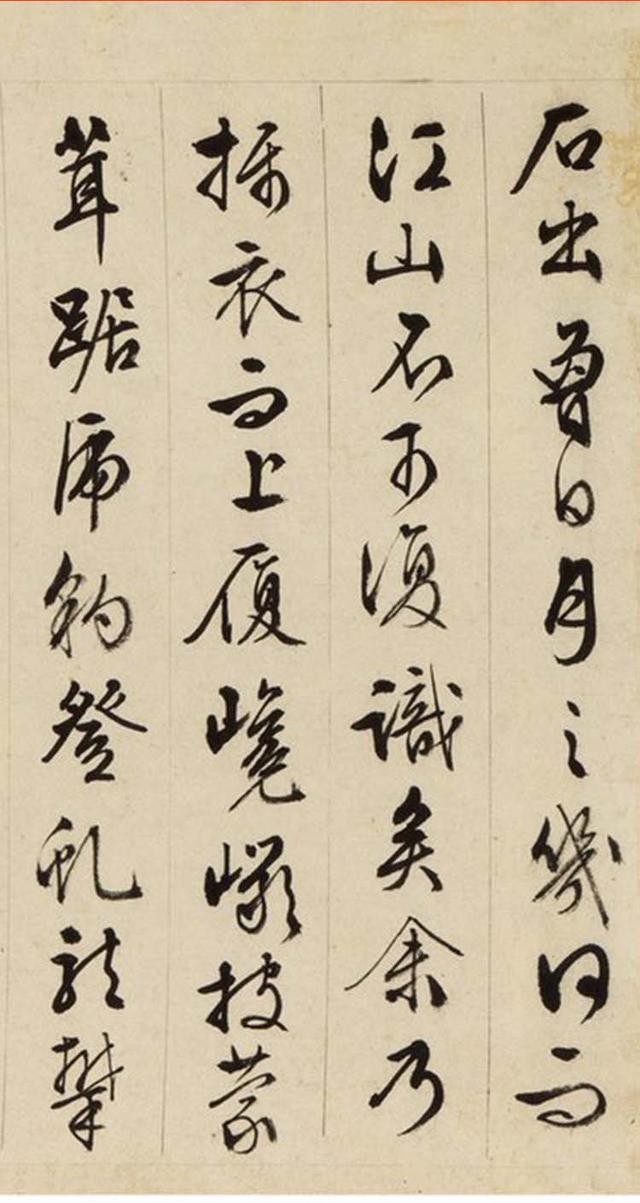 石出曾日月之幾何而
江山不可復識矣余乃
攝衣而上履巉巖披蒙
茸踞虎豹登虬龍攀